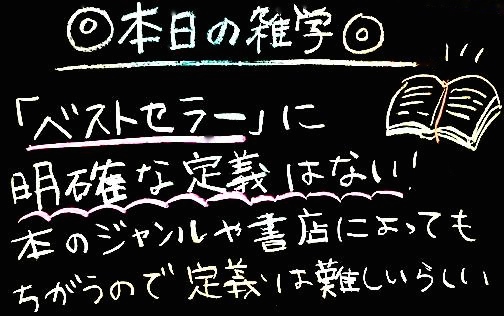 ◎本日の雑学◎
「ベストセラー」に
明確な定義はない!
本のジャンルや書店によっても
ちがうので定義は難しいらしい